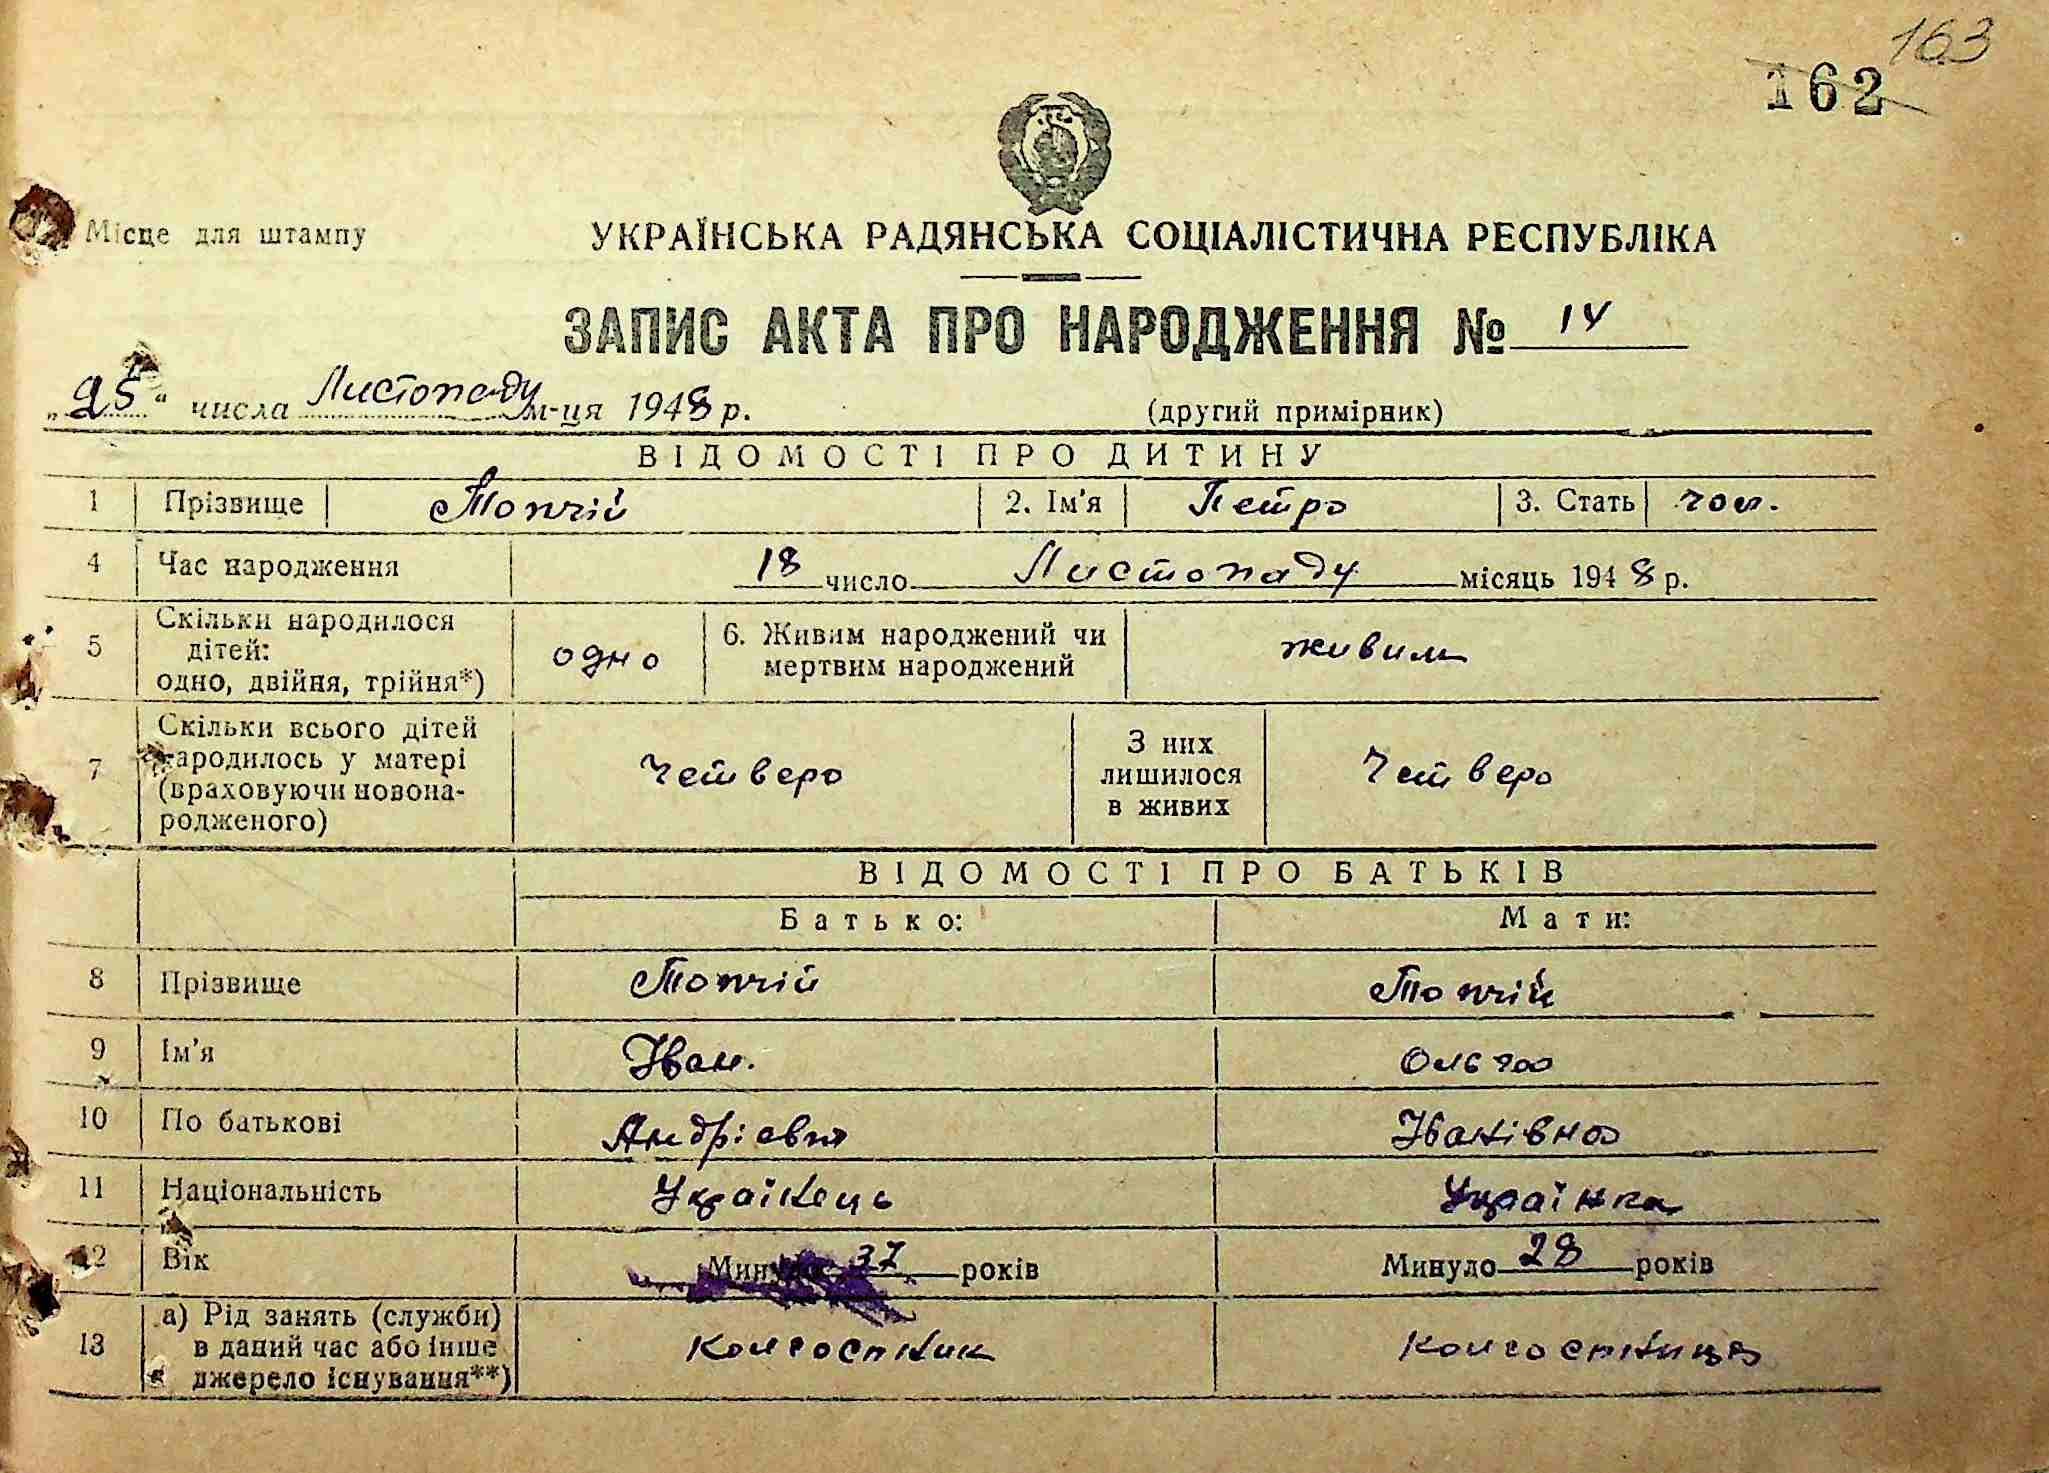 163
162
Місце для штампу
УКРАЇНСЬКА РАДЯНСЬКА СОЦІАЛІСТИЧНА РЕСПУБЛІКА
ЗАПИС АКТА ПРО НАРОДЖЕННЯ № 14
„25“ числа Листопаду м-ця 1948 р. (другий примірник)
ВІДОМОСТІ ПРО ДИТИНУ
1 Прізвище Топчій 2. Ім'я Петро 3. Стать чол.
4 Час народження 18 число Листопаду місяць 1948 р.
5 Скільки народилося дітей: одно, двійня, трійня*) одно 6. Живим народжений чи мертвим народжений живим
7 Скільки всього дітей народилось у матері (враховуючи новонародженого) Четверо З них лишилося в живих Четверо
ВІДОМОСТІ ПРО БАТЬКІВ
Батько: Мати:
8 Прізвище Топчій Топчій
9 Ім'я Іван. Ольга
10 По батькові Андрієвич Іванівна
11 Національність Українець Українка
12 Вік Минуло 37 років Минуло 28 років
13 а) Рід занять (служби) в даний час або інше джерело існування**) колгоспник колгоспниця